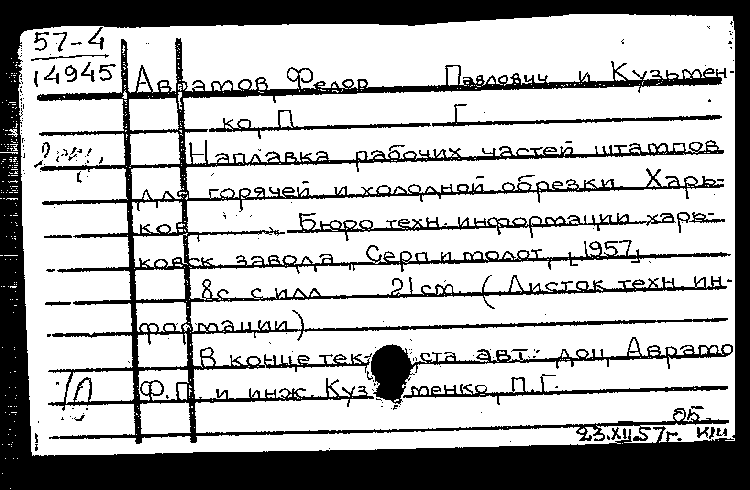 57-4
14945
Авратов, Федор Павлович и Кузьмен-
ко, П Г
Наплавка рабочих частей штампов
для горячей и холодной обрезки. Харь-
ков, Бюро техн. информации харь-
ковск. завода „Серп и молот", [1957]
8с. с илл. 21cm. (Листок техн. ин-
формации)
В конце текста авт.: доц. Аврато
Ф.П. и инж. Кузьменко, П.Г.
10
ОБ.
23.XII.57г. КШ